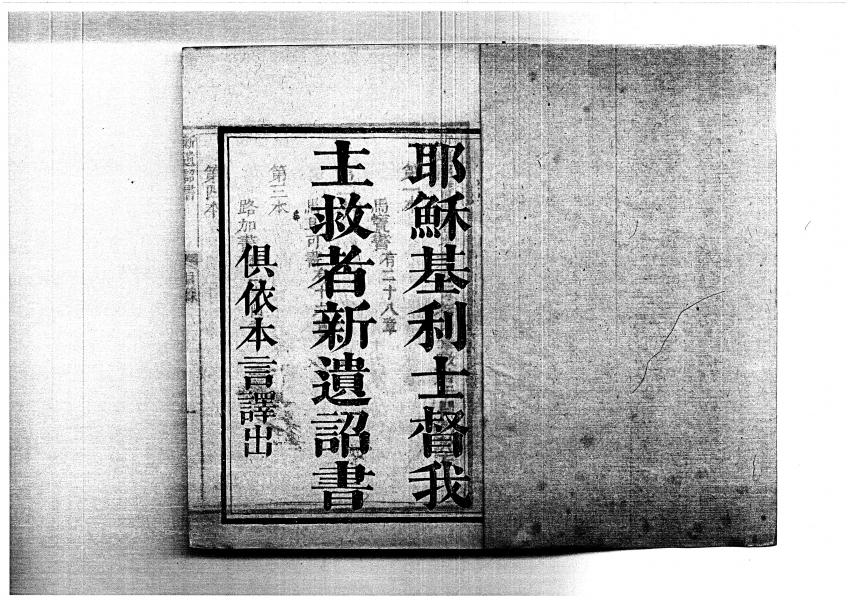 耶穌基利士督我
主救者新遺詔書
俱依本言譯出
有二十八章
第三本
路加書
第四本
新遺詔書